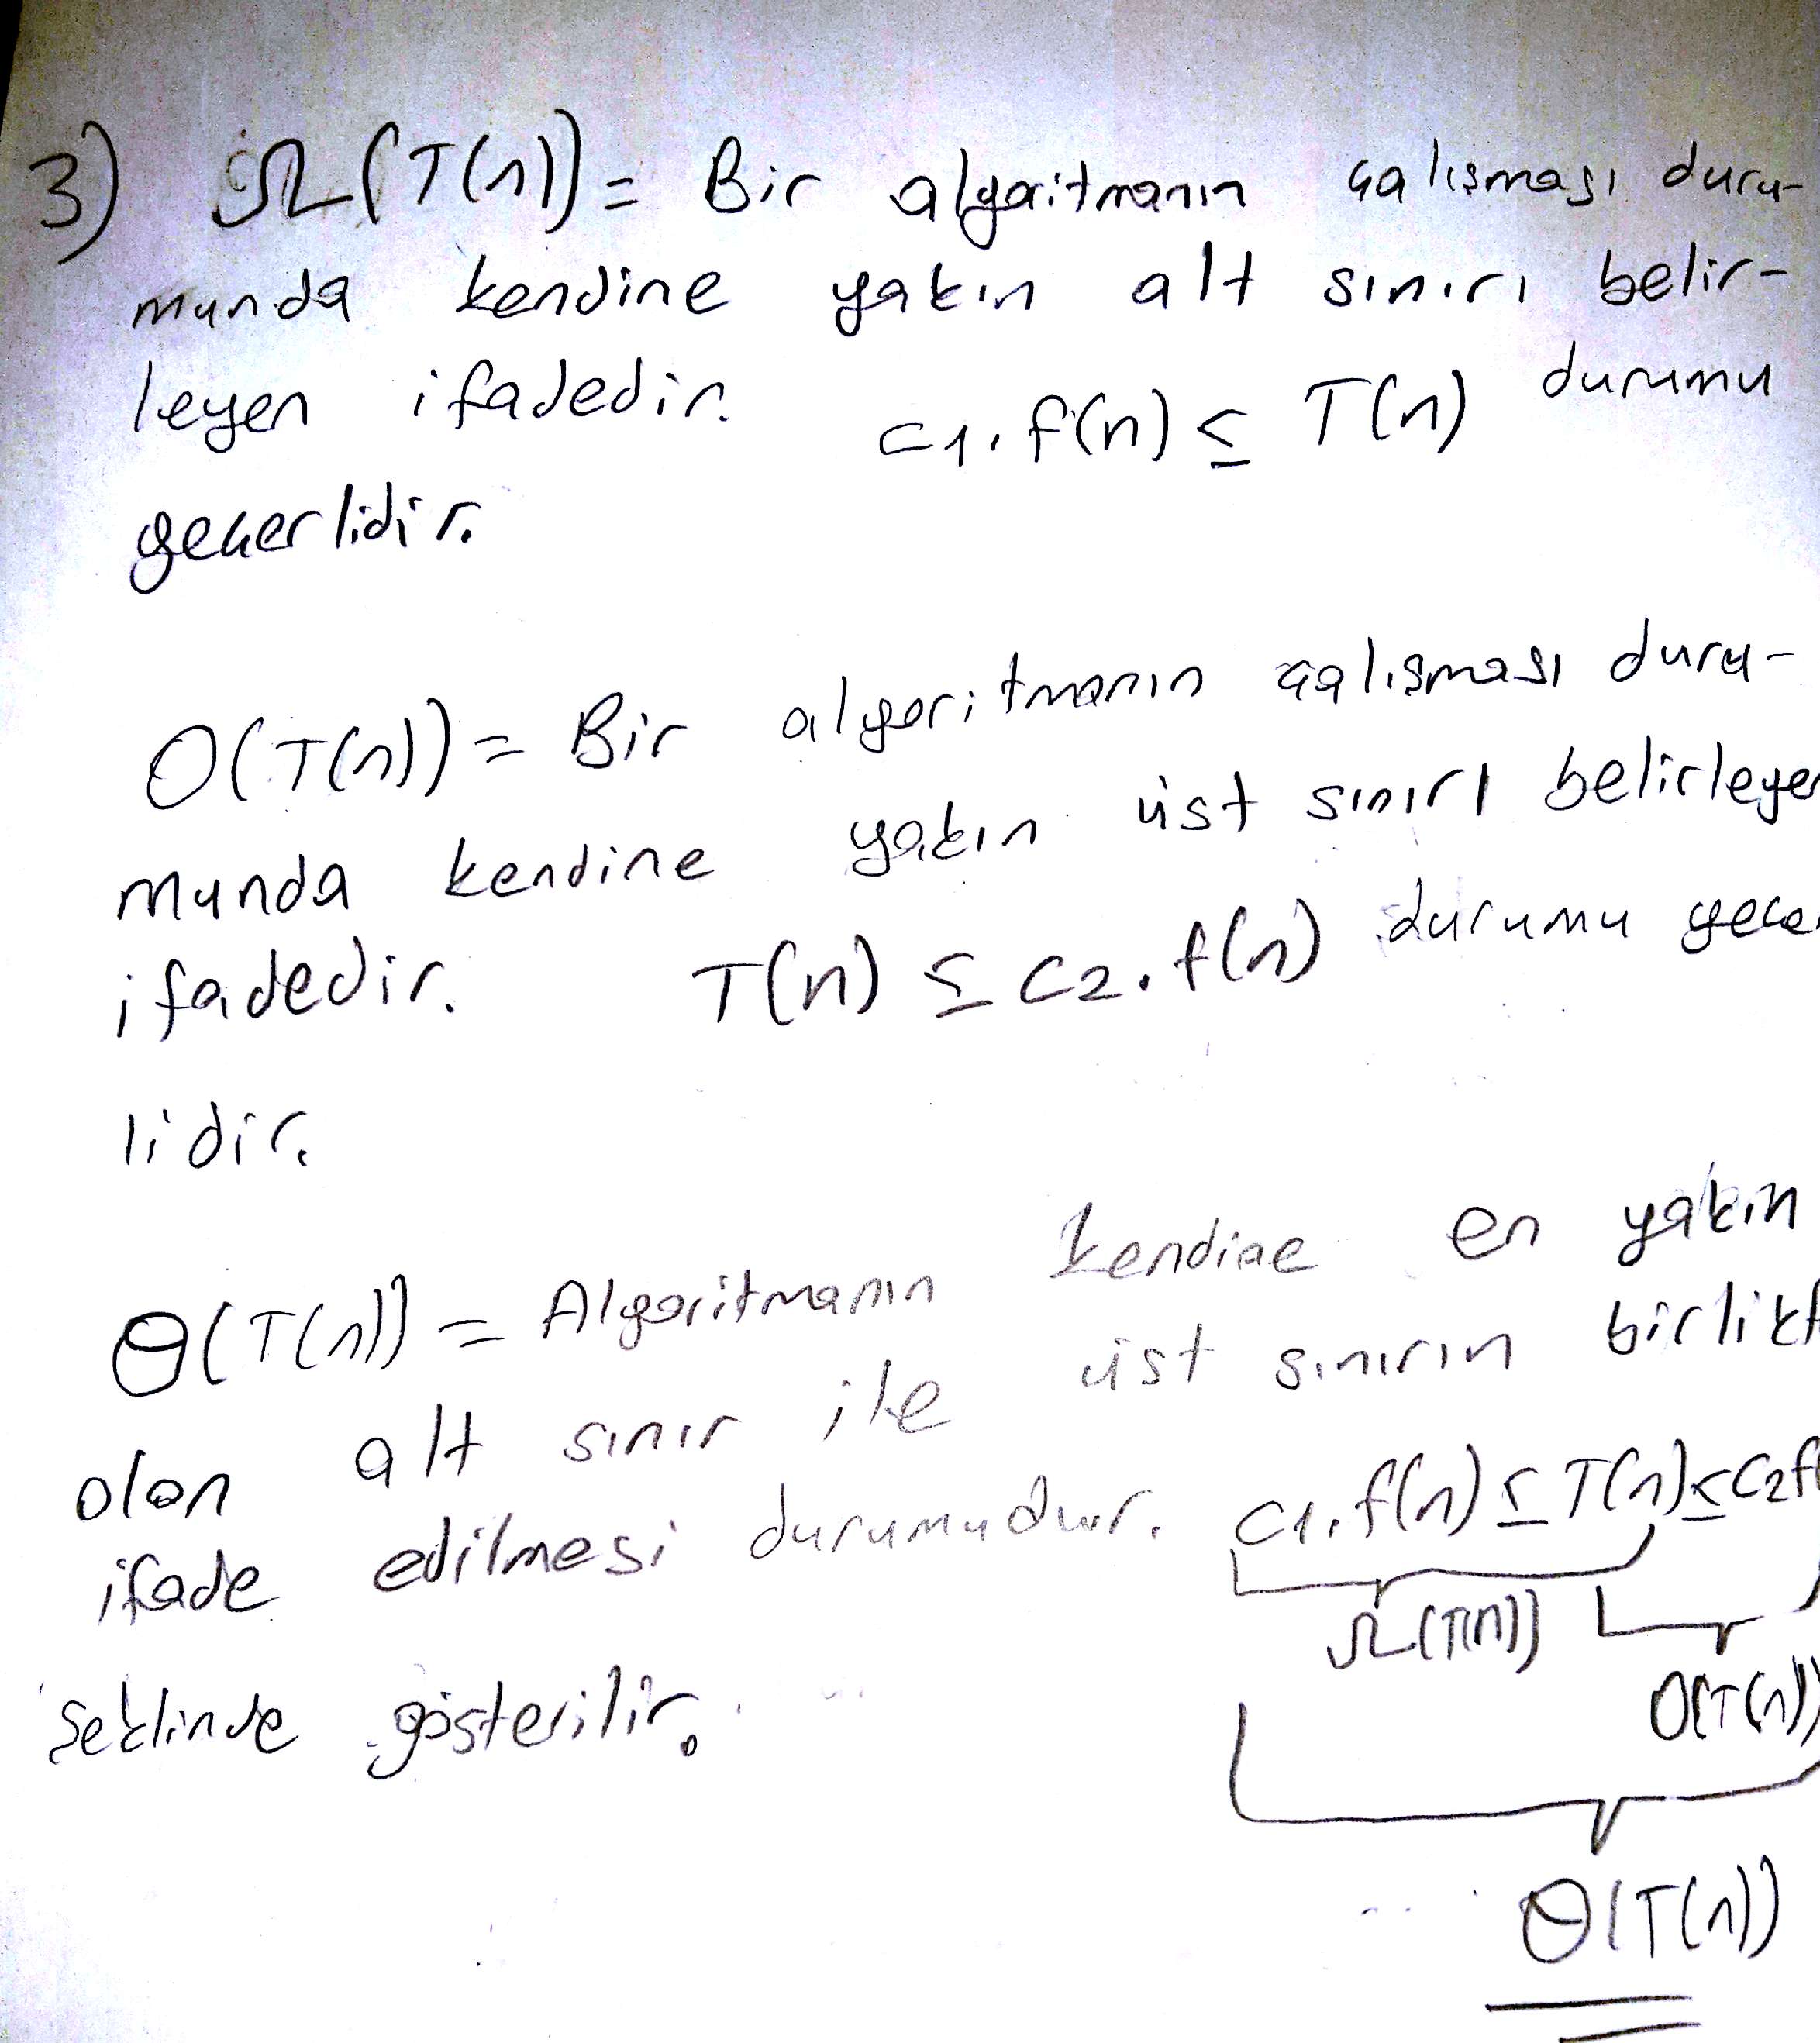 3) Ω(T(n)) = Bir algoritmanın çalışması duru-
munda kendine yakın alt sınırı belir-
leyen ifadedir. c1.f(n) ≤ T(n) durumu
geçerlidir.
O(T(n)) = Bir algoritmanın çalışması duru-
munda kendine yakın üst sınırı belirleyen
ifadedir. T(n) ≤ c2.f(n) durumu geçer
lidir.
Θ(T(n)) = Algoritmanın kendine en yakın
olan alt sınır ile üst sınırın birlikt
ifade edilmesi durumudur. c1.f(n) ≤ T(n) ≤ c2f(
Ω(T(n))
şeklinde gösterilir. O(T(n))
Θ(T(n))